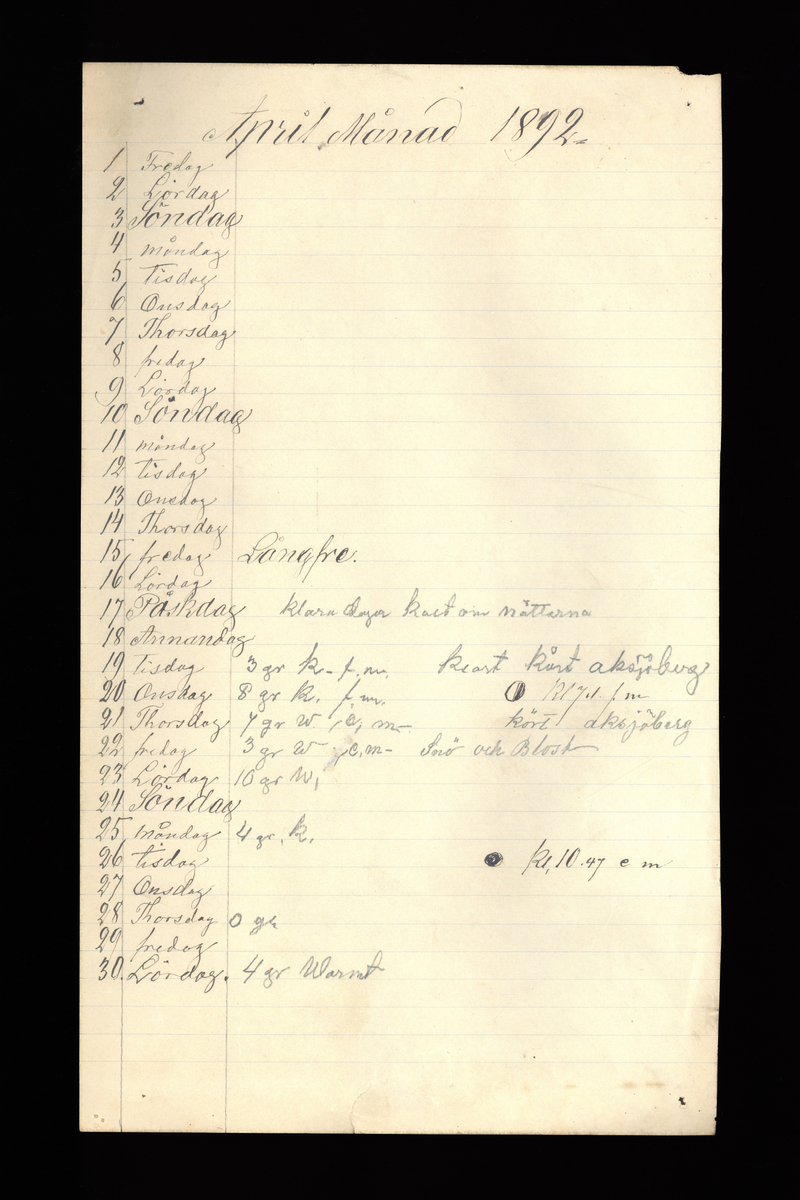 April Månad 1892
1 Fredag
2 Lördag
3 Söndag
4 måndag
5 tisdag
6 Onsdag
7 Thorsdag
8 fredag
9 Lördag
10 Söndag
11 måndag
12 tisdag
13 Onsdag
14 Thorsdag
15 fredag Långfre.
16 Lördag
17 Påskdag klara dagar kalt om nätterna
18 Annandag
19 tisdag 3 gr k - f. m. kört
20 Onsdag 8 gr k. f. m. f m
21 Thorsdag 7 gr W , e, m - kört aksjöberg
22 fredag 3 gr W , e, m - Snö och Blost
23 Lördag 10 gr W,
24 Söndag
25 måndag 4 gr. k.
26 tisdag kl, 10.47 e m
27 Onsdag
28 Thorsdag 0 gr
29 fredag
30. Lördag. 4 gr Warmt